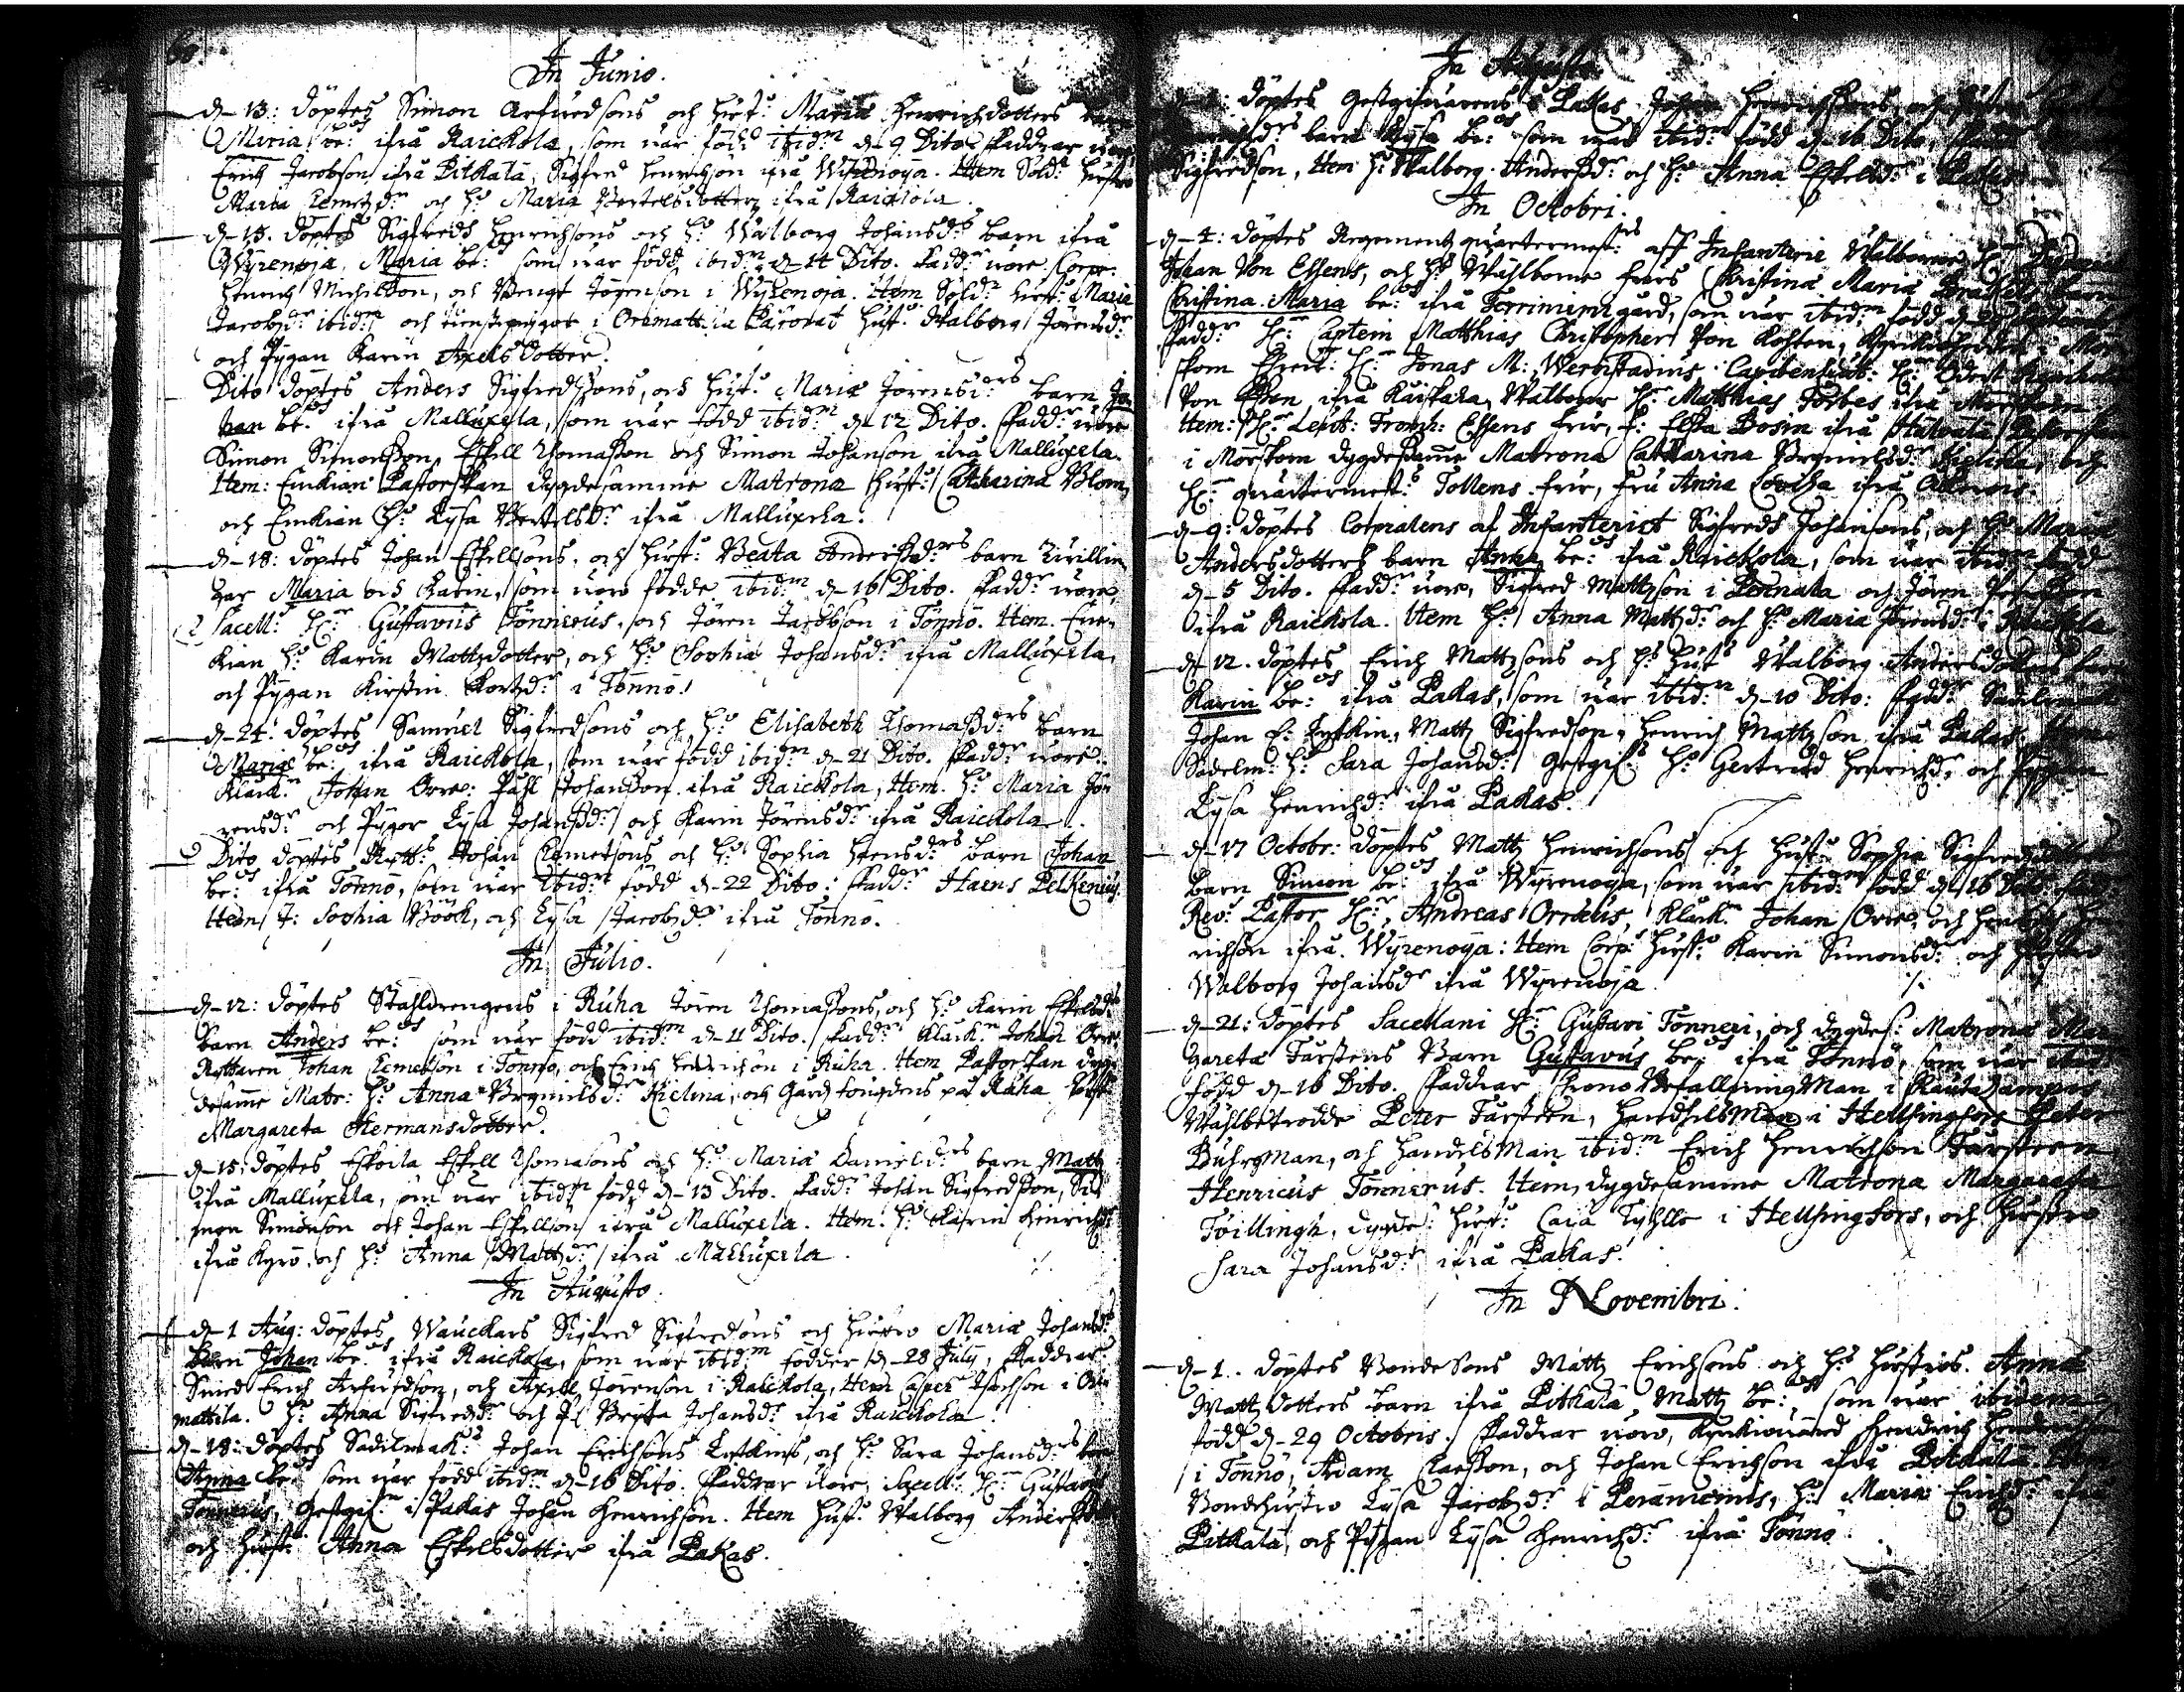 60.
In Junio.
d. 13: döptes Simon Arfuedsons och hust: Maria Henrichsdotters
Maria be: ifrå Raickola, som war född ibid:m d. 9 Dito. Faddrar wore
Erich Jacobson ifrå Pitkala, Sigfred Henrichson ifrå Wirenoja. Item Sold: hustro
Maria Clemetzd:r och h: Maria Bertelsdotter ifrå Raickola.
d. 15. döptes Sigfreds Henrichsons och h: Walborg Johansd:rs barn ifrå
Wyrenoja, Maria be: som war född ibid:m d. 14 Dito. Fadd:r wore Corpr:
Henrich Michelson, och Bengt Jörenson i Wyrenoja. Item Sold: hust: Maria
Jacobsd:r ibid:m och i Orimattila hust: Walborg Jörensd:r
och Pygan Karin Axelsdotter.
Dito döptes Anders Sigfredssons, och hust: Maria Jörensd:rs barn Jo-
han be: ifrå Mallusela, som war född ibid:m d. 12 Dito. Fadd:r wore
Simon Simonsson, Eskell Thomasson och Simon Johanson ifrå Mallusela.
Item: Enkian Pastorskan dygdesamme Matrona hust: Catharina Blom,
och Enkian h: Lysa Bertelsd:r ifrå Mallusela.
d. 18: döptes Johan Eskellsons, och hust: Beata Andersd:rs barn Twillin
gar Maria och Karin, som wore födde ibid:m d. 16 Dito. Fadd:r wore,
Sacell: H:r Gustavus Tönnerus, och Jören Jacobson i Tönnö. Item En-
kian h: Karin Mattzdotter, och h: Sophia Johansd:r ifrå Mallusela,
och Pygan Kirstin i Tönnö.
d. 24: döptes Samuel Sigfredsons och h: Elisabeth Thomasd:rs barn
Maria be: ifrå Raickola, som war född ibid:m d. 21 Dito. Fadd:r wore
Klåck:n Johan Orre: Påhl Johansson ifrå Raickola, Item. h: Maria Jö-
rensd:r och Pygor Lysa Johansd:r och Karin Jörensd:r ifrå Raickola.
Dito döptes Rytt: Johan Clemetsons och h: Sophia Hensd:rs barn Johan
be: ifrå Tönnö, som war ibid:m född d. 22 Dito: Fadd:r Haens Pelkenius
Item J: Sophia Böök, och Lysa Jacobsd:r ifrå Tönnö.
In Julio.
d. 12: döptes Stahldrengens i Ruha Jören Thomassons, och h: Karin Eskelsd:rs
barn Anders be: som war född ibid:m d. 11 Dito. Fadd:r Klåck:n Johan Orre
Ryttaren Johan Clemetson i Tönnö, och Erich Henrichson i Ruha. Item Pastorskan dyg
desamme Matr: h: Anna Brynielsd:r Kielina, och Gårdzfougdens på Ruha hust
Margareta Hermansdotter.
d. 15: döptes Eskoila Eskell Thomasons och h: Maria Danielsd:rs barn Matz
ifrå Mallusela, som war ibid:m född d. 13 Dito. Fadd:r Johan Sigfredsson, Si-
mon Simonson och Johan Eskellson ifrå Mallusela. Item. h: Karin Hinrichsd:r
ifrå Kyrö, och h: Anna Mattzd:r ifrå Mallusela.
In Augusto.
d. 1 Aug: döptes Wauckars Sigfred Sigfredsons och hustro Maria Johansd:rs
barn Johan be: ifrå Raickola, som war ibid:m födder d. 28 July, Faddrar
Smed Erich Arfuedson, och Axell Jörenson i Raickola, Item Casper Isachson i Ori
mattila. h: Anna Sigfredsd:r och P: Bryta Johansd:r ifrå Raickola.
d. 18: döptes Sadelmak: Johan Erichsons Lytkins, och h: Sara Johansd:rs
Anna be: som war född ibid:m d. 16 Dito. Faddrar wore, Sacell: H:r Gustavus
Tönnerus, Gestgif: i Pakas Johan Henrichson. Item hust: Walborg Andersdotter
och hust: Anna Eskelsdotter ifrå Pakas.
In Augusto.
döptes Gestgifwarens i Pakas Johan Henrichsons, och
barn Lysa be: som war ibid:m född d. 16 Dito,
Sigfredson, Item h: Walborg Andersd:r och h: Anna Eskelsd:r i Pakas
In Octobri.
d. 4: döptes Regementzquartermest:rs aff Infanteriet Walborne H:r
Johan Von Essens, och h: Wählborne Frus Christina Maria
Christina Maria be: ifrå Terriniemi gård, som war ibid:m född d.
Fadd:r H:r Captein Matthias Christopher Von Kohten,
skom H:r Jonas M: Werbistadius H:r
Von Essen ifrå Kaiskala, Walborne H:r Matthias Forbes ifrå
Item: H:r Leut: Essens frur, F: Elsa Bosin ifrå
i Mörskom dygdesamme Matrona Catharina Brynielsd:r Kielina, och
H:r quartermest: Tollens frur, fru Anna Lovisa ifrå
d. 9: döptes Corpralens af Infanteriet Sigfreds Johansons, och h: Maria
Andersdotters barn Anna be: ifrå Raickola, som war ibid:m född
d. 5 Dito. Fadd:r wore, Sigfred Mattzson i Pennala och Jören
ifrå Raickola. Item h: Anna Mattzd:r och h: Maria Jörensd:r i Raickola
d. 12. döptes Erich Mattzsons och hust: Walborg Andersdotters
Karin be: ifrå Pakas, som war ibid:m d. 10 Dito: Fadd:r
Johan E: Lytkin, Mattz Sigfredson, Henrich Mattzson ifrå Pakas.
Sadelm: h: Sara Johansd:r Gestgif: h: Gertrud Henrichsd:r och Pygan
Lysa Henrichsd:r ifrå Pakas.
d. 17 Octobr: döptes Mattz Hinrichsons och hust: Sophia Sigfredsdotters
barn Simon be: ifrå Wyrenoja, som war ibid:m född d. 16 Dito
Rev: Pastor H:r Andreas Orræus, Klåck:n Johan Orre, och
richson ifrå Wyrenoja: Item Corp: hust: Karin Simonsd:r och hustro
Walborg Johansd:r ifrå Wyrenoja.
d. 21: döptes Sacellani H:r Gustavi Tönneri, och dygdes: Matrona Mar-
gareta Farstens Barn Gustavus be: ifrå Tönnö, som war ibid:
född d. 16 Dito. Faddrar Chrono Befallningzman i Rautalampi
Wählbetrodde Peter Farsteen, Handhelsman i Hellsingfors Peter
Buhrman, och Handelsman ibid:m Erich Henrichson Farsteen
Henricus Tönnerus. Item, dygdesamme Matrona Margareta
Toillingh, dygdes: hust: Caia Tyhlle i Hellsingfors, och Hustro
Sara Johansd:r ifrå Pakas.
In Novembri.
d. 1. döptes Bonde Sons Mattz Erichsons och h: hustros Anna
Mattzdotters barn ifrå Pitkala, Mattz be: som war ibidem
född d. 29 Octobris. Faddrar wore, Kyrkiowerd Hendrich
i Tönnö, Adam Claesson, och Johan Erichson ifrå Pitkala. Item
Bondehustro Lysa Jacobsd:r i h: Maria Erichsd:r ifrå
Pitkala, och Pygan Lysa Henrichsd:r ifrå Tönnö.